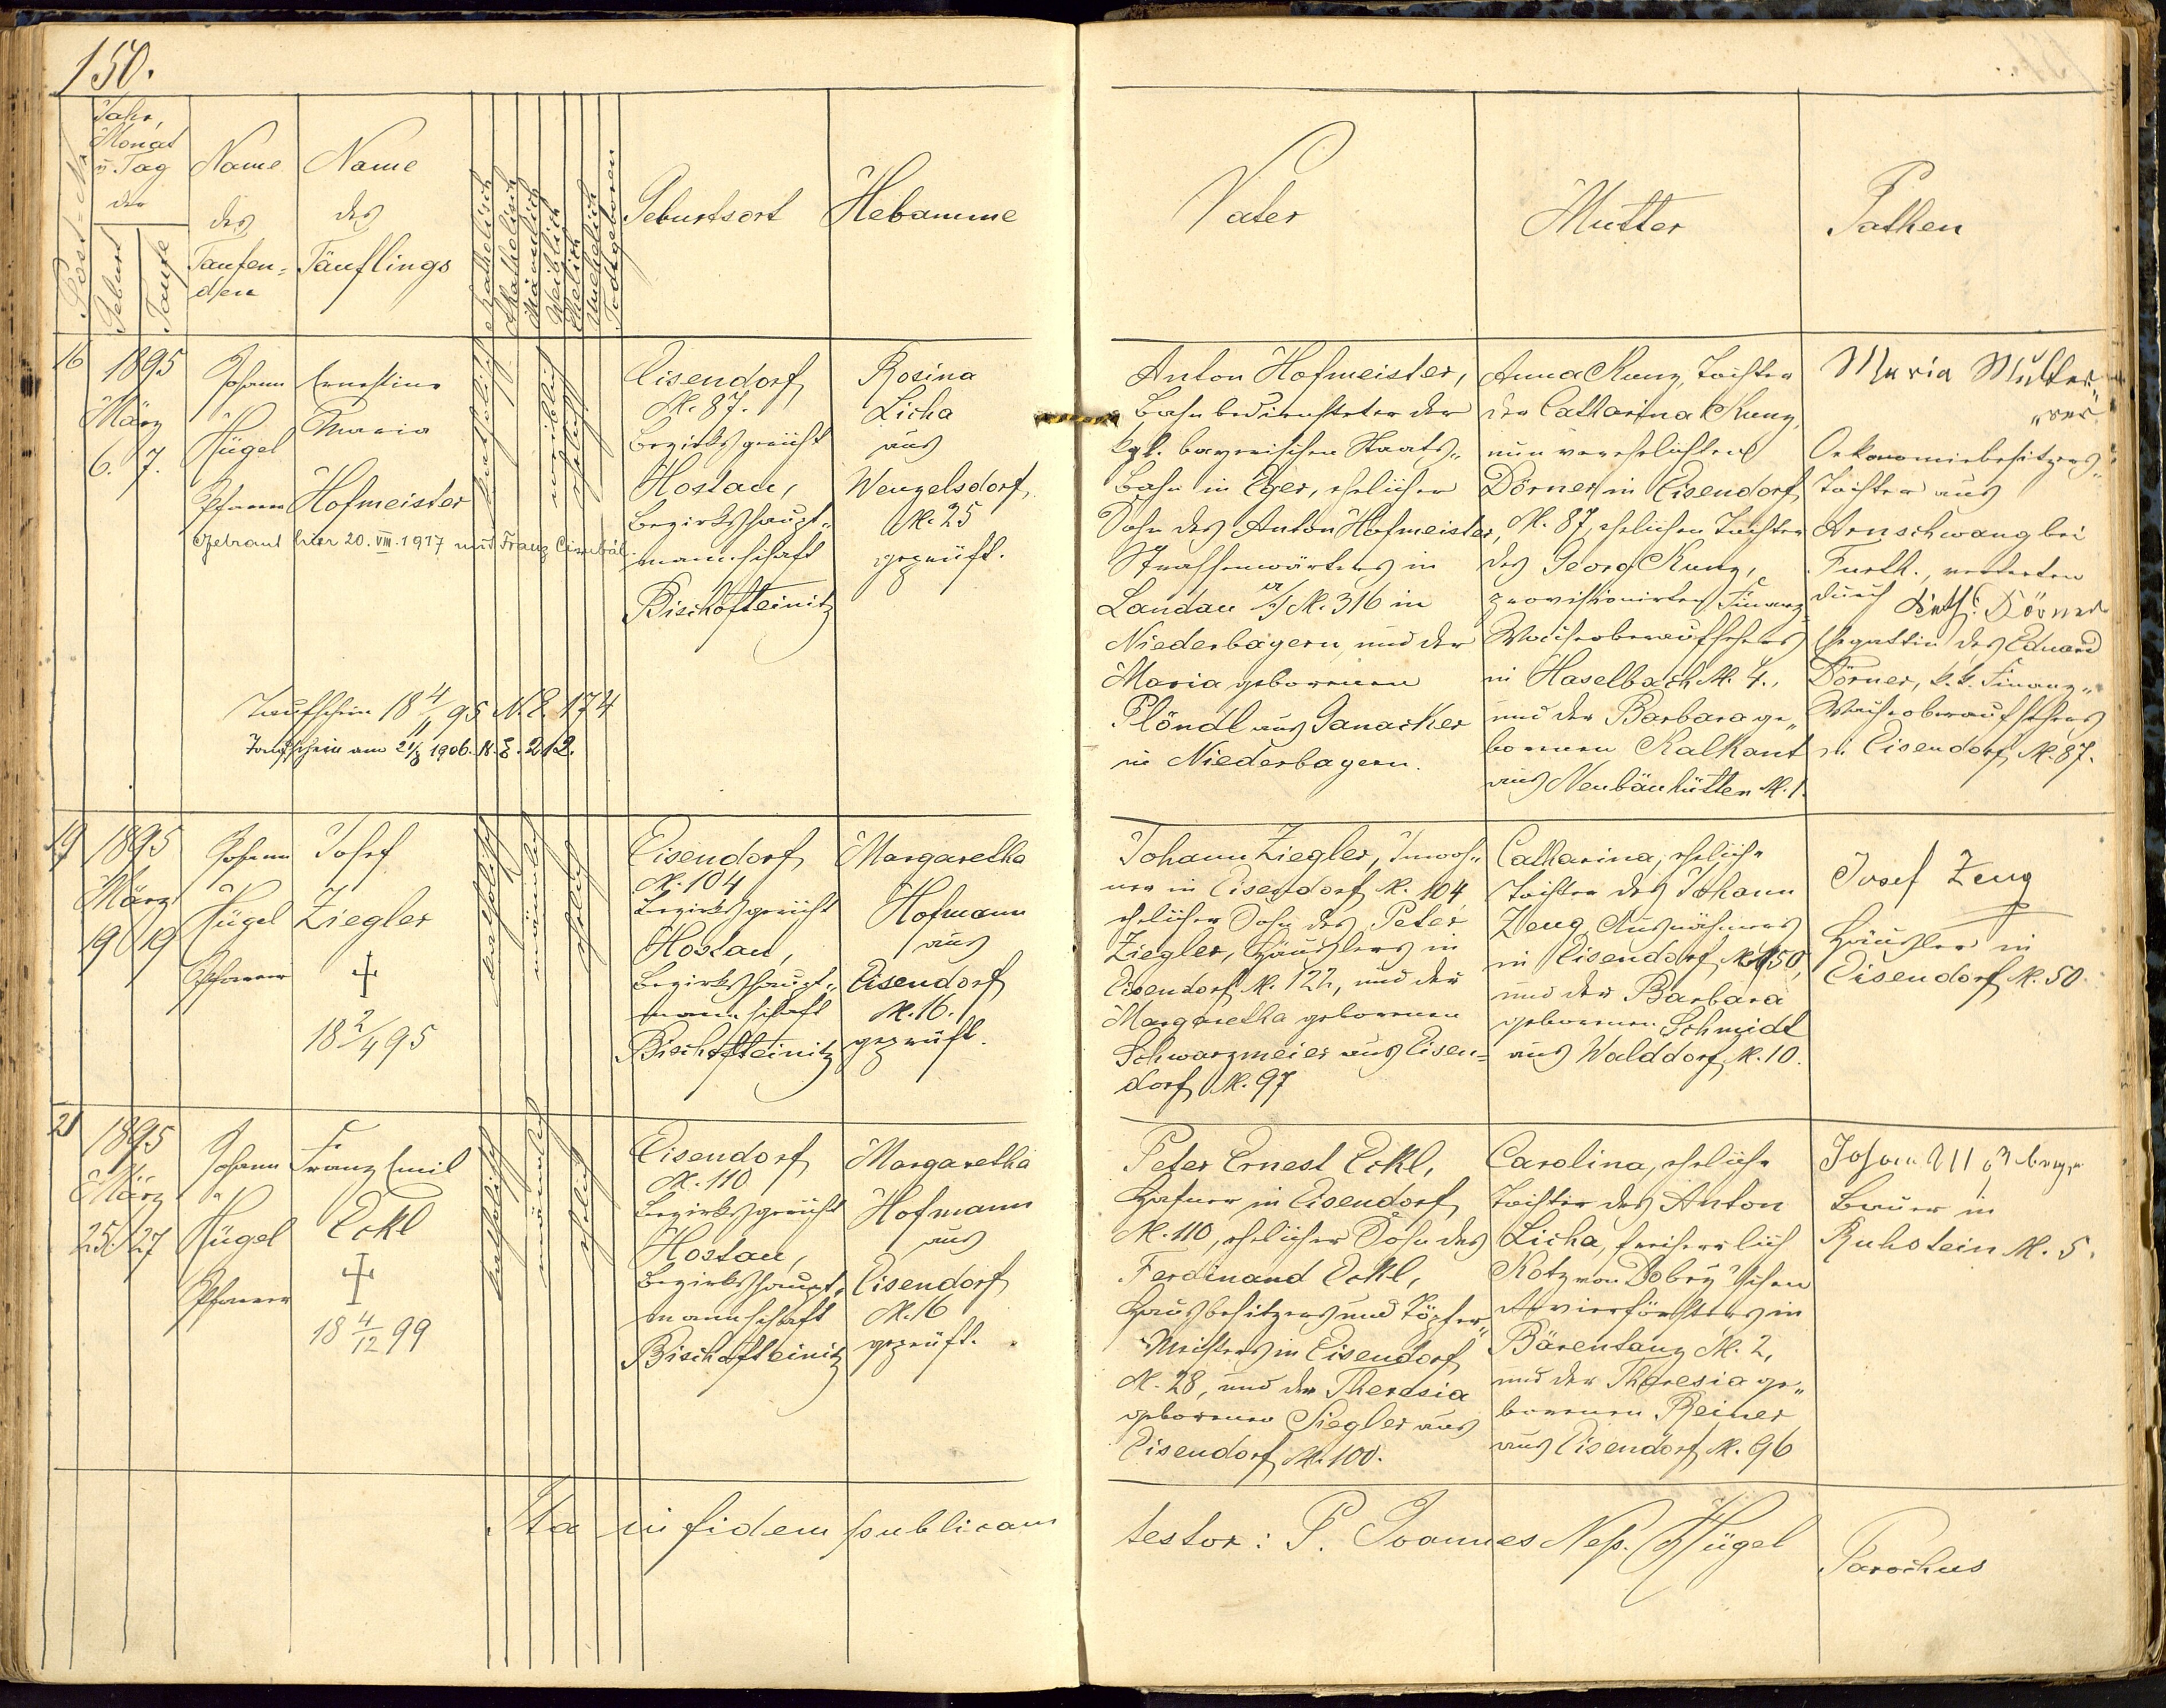 150.
Post=No
Jahr,
Monat
u. Tag
der
Geburt
Taufe
Name
des
Taufen=
den
Name
des
Täuflings
Katholisch
Akatholisch
Männlich
Weiblich
Ehelich
Unehelich
Todtgeboren
Geburtsort
Hebamme
Vater
Mutter
Pathen
16
1895
März
6. 7.
Johann
Hügel
Pfarrer
Ernestine
Maria
Hofmeister
getraut hier 20. VIII. 1917 mit Franz
Taufschein 18 4/11 95 N.E. 174
Taufschein am 21/8 1906. N.E. 212.
katholisch
weiblich
ehelich
Eisendorf
N. 87.
Bezirksgericht
Hostau,
Bezirkshaupt„
mannschaft
Bischofteinitz
Rosina
Licha
aus
Wenzelsdorf,
N. 25
geprüft.
Anton Hofmeister,
Bahnbediensteter der
kgl. bayerischen Staats„
bahn in Eger, ehelicher
Sohn des Anton Hofmeister,
Strassenwärters in
Landau a/I N. 316 in
Niederbayern, und der
Maria geborenen
Plöndl aus Ganacker
in Niederbayern.
Anna Kunz, Tochter
der Catharina Kunz,
nun verehelichten
Dörner in Eisendorf
N. 87, ehelichen Tochter
des Georg Kunz,
provisionirten Finanz=
Wachoberaufsehers
in Haselbach N. 4.,
und der Barbara ge„
borenen Kalkant
aus Neubäuhütten N. 1.
Maria Multer
Oekonomiebesitzers„
Tochter aus
Arnschwang bei
Furth., vertreten
durch Kath. Dörner
Ehegattin des Eduard
Dörner, k.k. Finanz„
Wachoberaufsehers
in Eisendorf N. 87.
19
1895
März
19 19
Johann
Hügel
Pfarrer
Josef
Ziegler
†
18 2/4 95
katholisch
männlich
ehelich
Eisendorf
N. 104
Bezirksgericht
Hostau,
Bezirkshaupt„
mannschaft
Bischofteinitz
Margaretha
Hofmann
aus
Eisendorf
N. 16.
geprüft.
Johann Ziegler, Inwoh„
ner in Eisendorf N. 104,
ehelicher Sohn des Peter
Ziegler, Häuslers in
Eisendorf N. 122, und der
Margaretha geborenen
Schwarzmeier aus Eisen=
dorf N. 97
Catharina, eheliche
Tochter des Johann
Zeug, Ausnähmers
in Eisendorf N. 50,
und der Barbara
geborenen Schmidt
aus Walddorf, N. 10.
Josef Zeug
Häusler in
Eisendorf N. 50.
21
1895
März
25. 27
Johann
Hügel
Pfarrer
Franz Emil
Eckl
†
18 4/12 99
katholisch
männlich
ehelich
Eisendorf
N. 110
Bezirksgericht
Hostau,
Bezirkshaupt„
mannschaft
Bischofteinitz
Margaretha
Hofmann
aus
Eisendorf
N. 16
geprüft.
Peter Ernest Eckl,
Hafner in Eisendorf
N. 110, ehelicher Sohn des
Ferdinand Eckl,
Hausbesitzers und Töpfer„
Meisters in Eisendorf
N. 28, und der Theresia
geborenen Siegler aus
Eisendorf N. 100.
Carolina, eheliche
Tochter des Anton
Licha, freiherrlich
Kotz von Dobrz'schen
Revierförsters in
Bärentanz N. 2,
und der Theresia ge„
borenen Reiner
aus Eisendorf N. 96
Johann
Bauer in
Ruhstein N. 5.
Ita in fidem publicam
testor: P. Joannes Nep. Hügel
Parochus